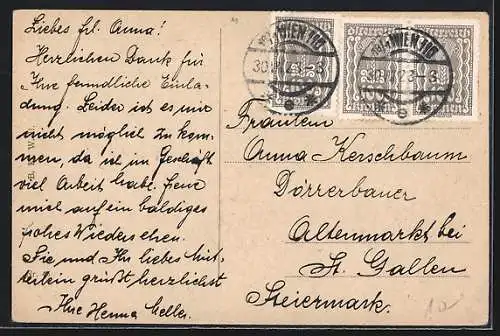 Liebes frl. Anna!
Herzlichen Dank für
Ihre freundliche Einla-
dung. Leider ist es mir
nicht möglich zu kom-
men, da ich im Geschäft
viel Arbeit habe. Freue
mich auf ein baldiges
frohes Wiedersehen.
Sie und Ihr liebes Müt-
terlein grüßt herzlichst
Ihre Henna
WIEN 110
30. 23-3
WIEN 110
30. 23-3
Fräulein
Anna Kerschbaum
Dörrerbauer
Altenmarkt bei
St. Gallen
Steiermark.